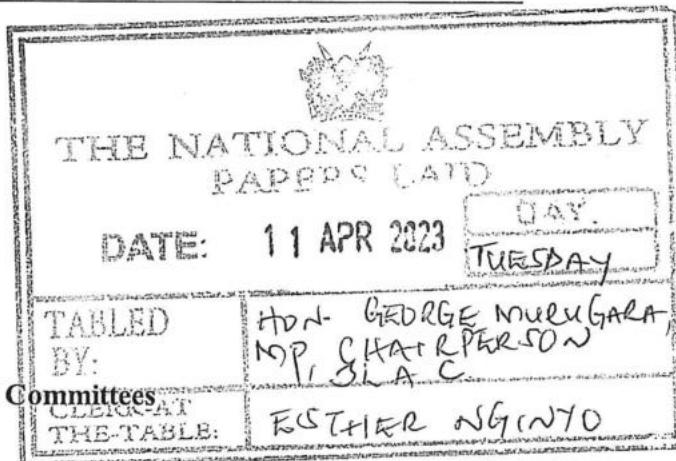 THE NATIONAL ASSEMBLY
PAPERS LAID
DATE: 11 APR 2023
DAY.
TUESDAY
TABLED BY:
HON. GEORGE MURUGARA,
MP, CHAIRPERSON
JLAC
Committees
CLERK-AT THE-TABLE:
ESTHER NGINYO